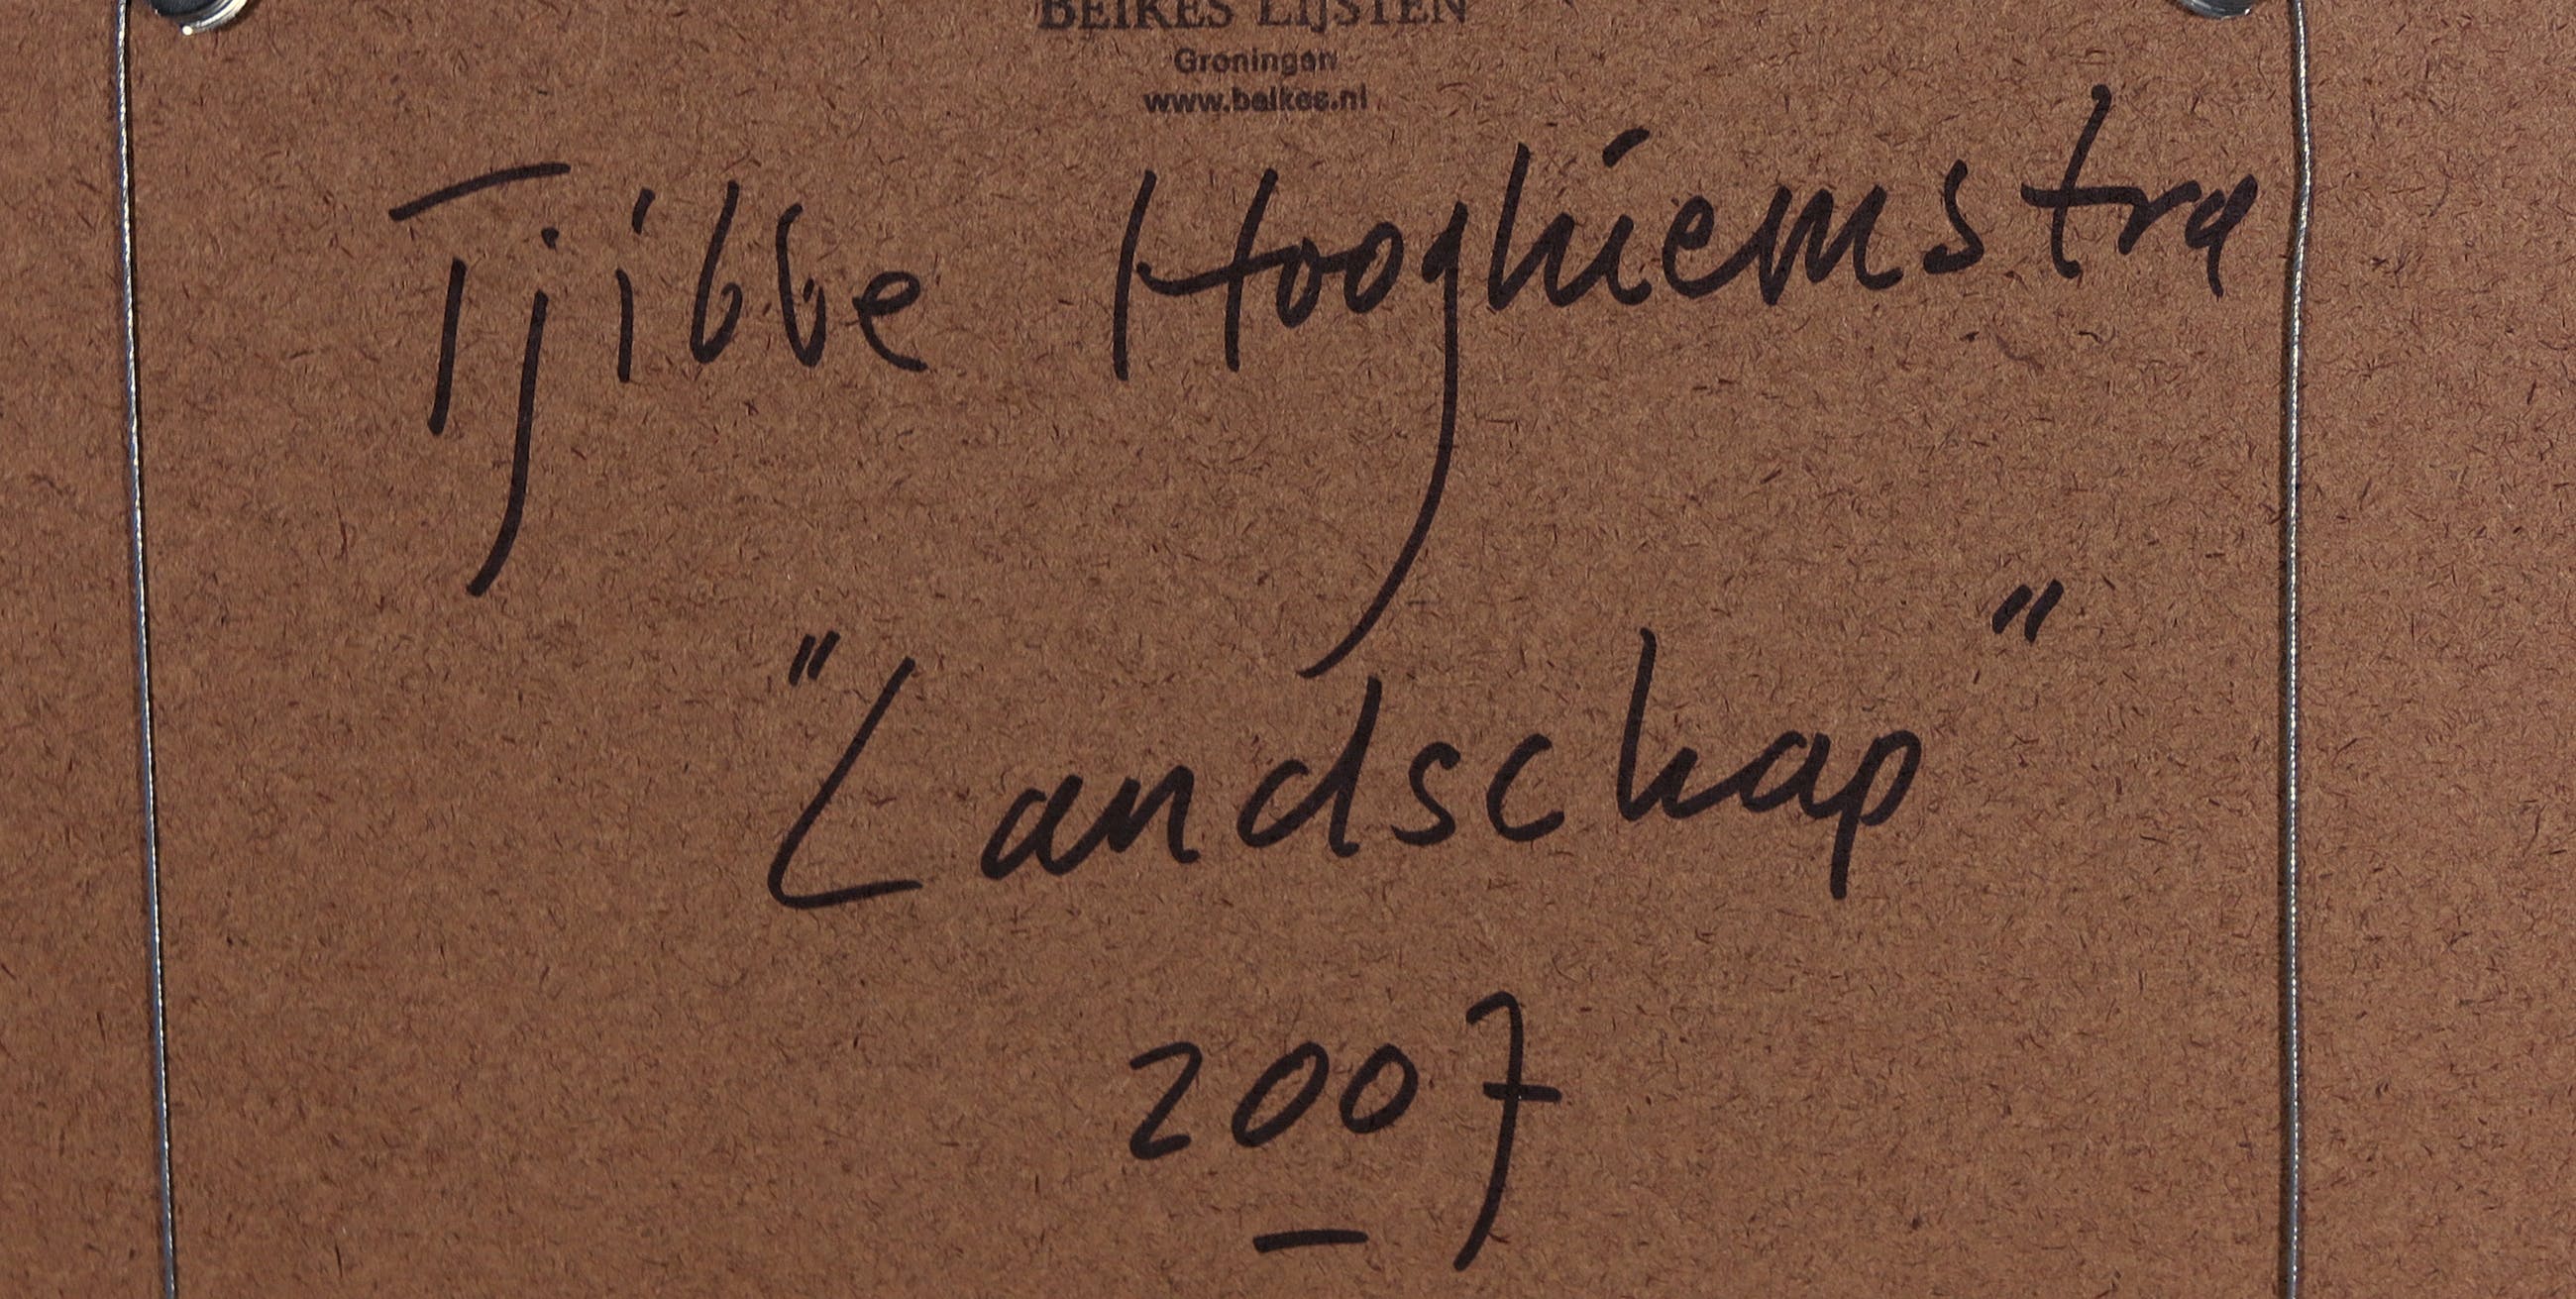 BEIKES LIJSTEN
Groningen
www.beikes.nl
Tjibbe Hooghiemstra
"Landschap"
2007